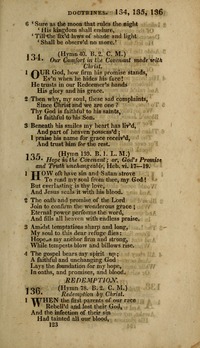 DOCTRINES. 134, 135, 136
6 'Sure as the moon that rules the night
'His kingdom shall endure,
'Till the fix'd laws of shade and light
'Shall be observ'd no more.'
134. (Hymn 40. B. 2. C. M.)
Our Comfort in the Covenant made with
Christ.
1 OUR God, how firm his promise stands,
E'en when he hides his face!
He trusts in our Redeemer's hands
His glory and his grace.
2 Then why, my soul, these sad complaints,
Since Christ and we are one?
Thy God is faithful to his saints,
Is faithful to his Son.
3 Beneath his smiles my heart has liv'd,
And part of heaven possess'd;
I praise his name for grace receiv'd,
And trust him for the rest.
135. (Hymn 139. B. 1. L. M.)
Hope in the Covenant; or, God's Promise
and Truth unchangeable. Heb. vi. 17—19.
1 HOW oft have sin and Satan strove
To rend my soul from thee, my God!
But everlasting is thy love,
And Jesus seals it with his blood.
2 The oath and promise of the Lord
Join to confirm the wonderous grace;
Eternal power performs the word,
And fills all heaven with endless praise.
3 Amidst temptations sharp and long,
My soul to this dear refuge flies:
Hope is my anchor firm and strong,
While tempests blow and billows rise.
4 The gospel bears my spirit up;
A faithful and unchanging God
Lays the foundation for my hope,
In oaths, and promises, and blood.
REDEMPTION.
136. (Hymn 78. B. 2. C. M.)
Redemption by Christ.
1 WHEN the first parents of our race
Rebell'd and lost their God,
And the infection of their sin
Had tainted all our blood,
123